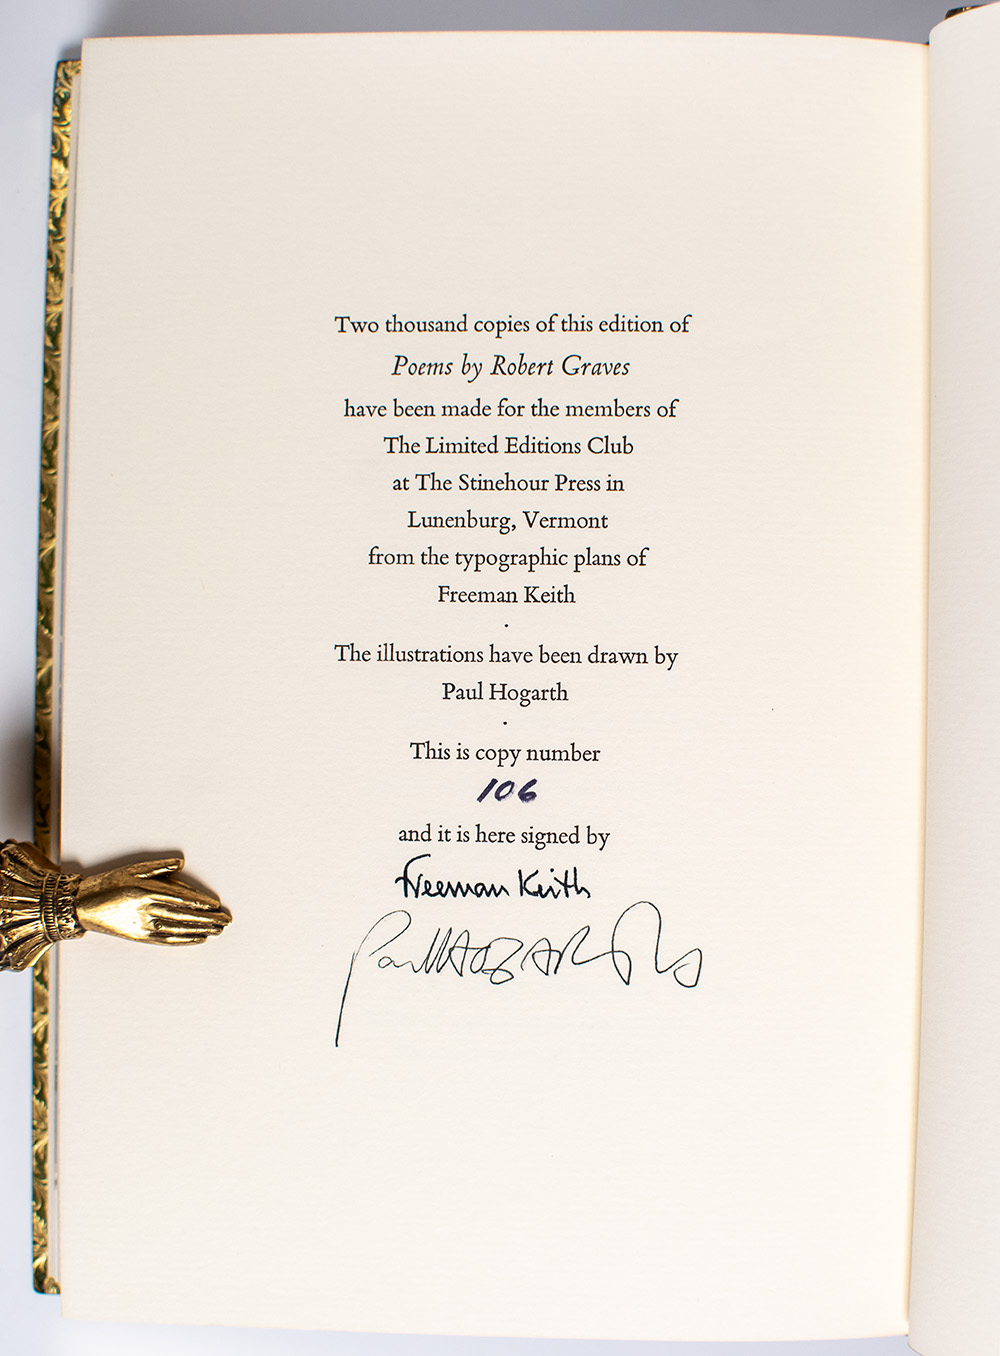 Two thousand copies of this edition of
Poems by Robert Graves
have been made for the members of
The Limited Editions Club
at The Stinehour Press in
Lunenburg, Vermont
from the typographic plans of
Freeman Keith
·
The illustrations have been drawn by
Paul Hogarth
·
This is copy number
106
and it is here signed by
Freeman Keith
Paul HOGARTH